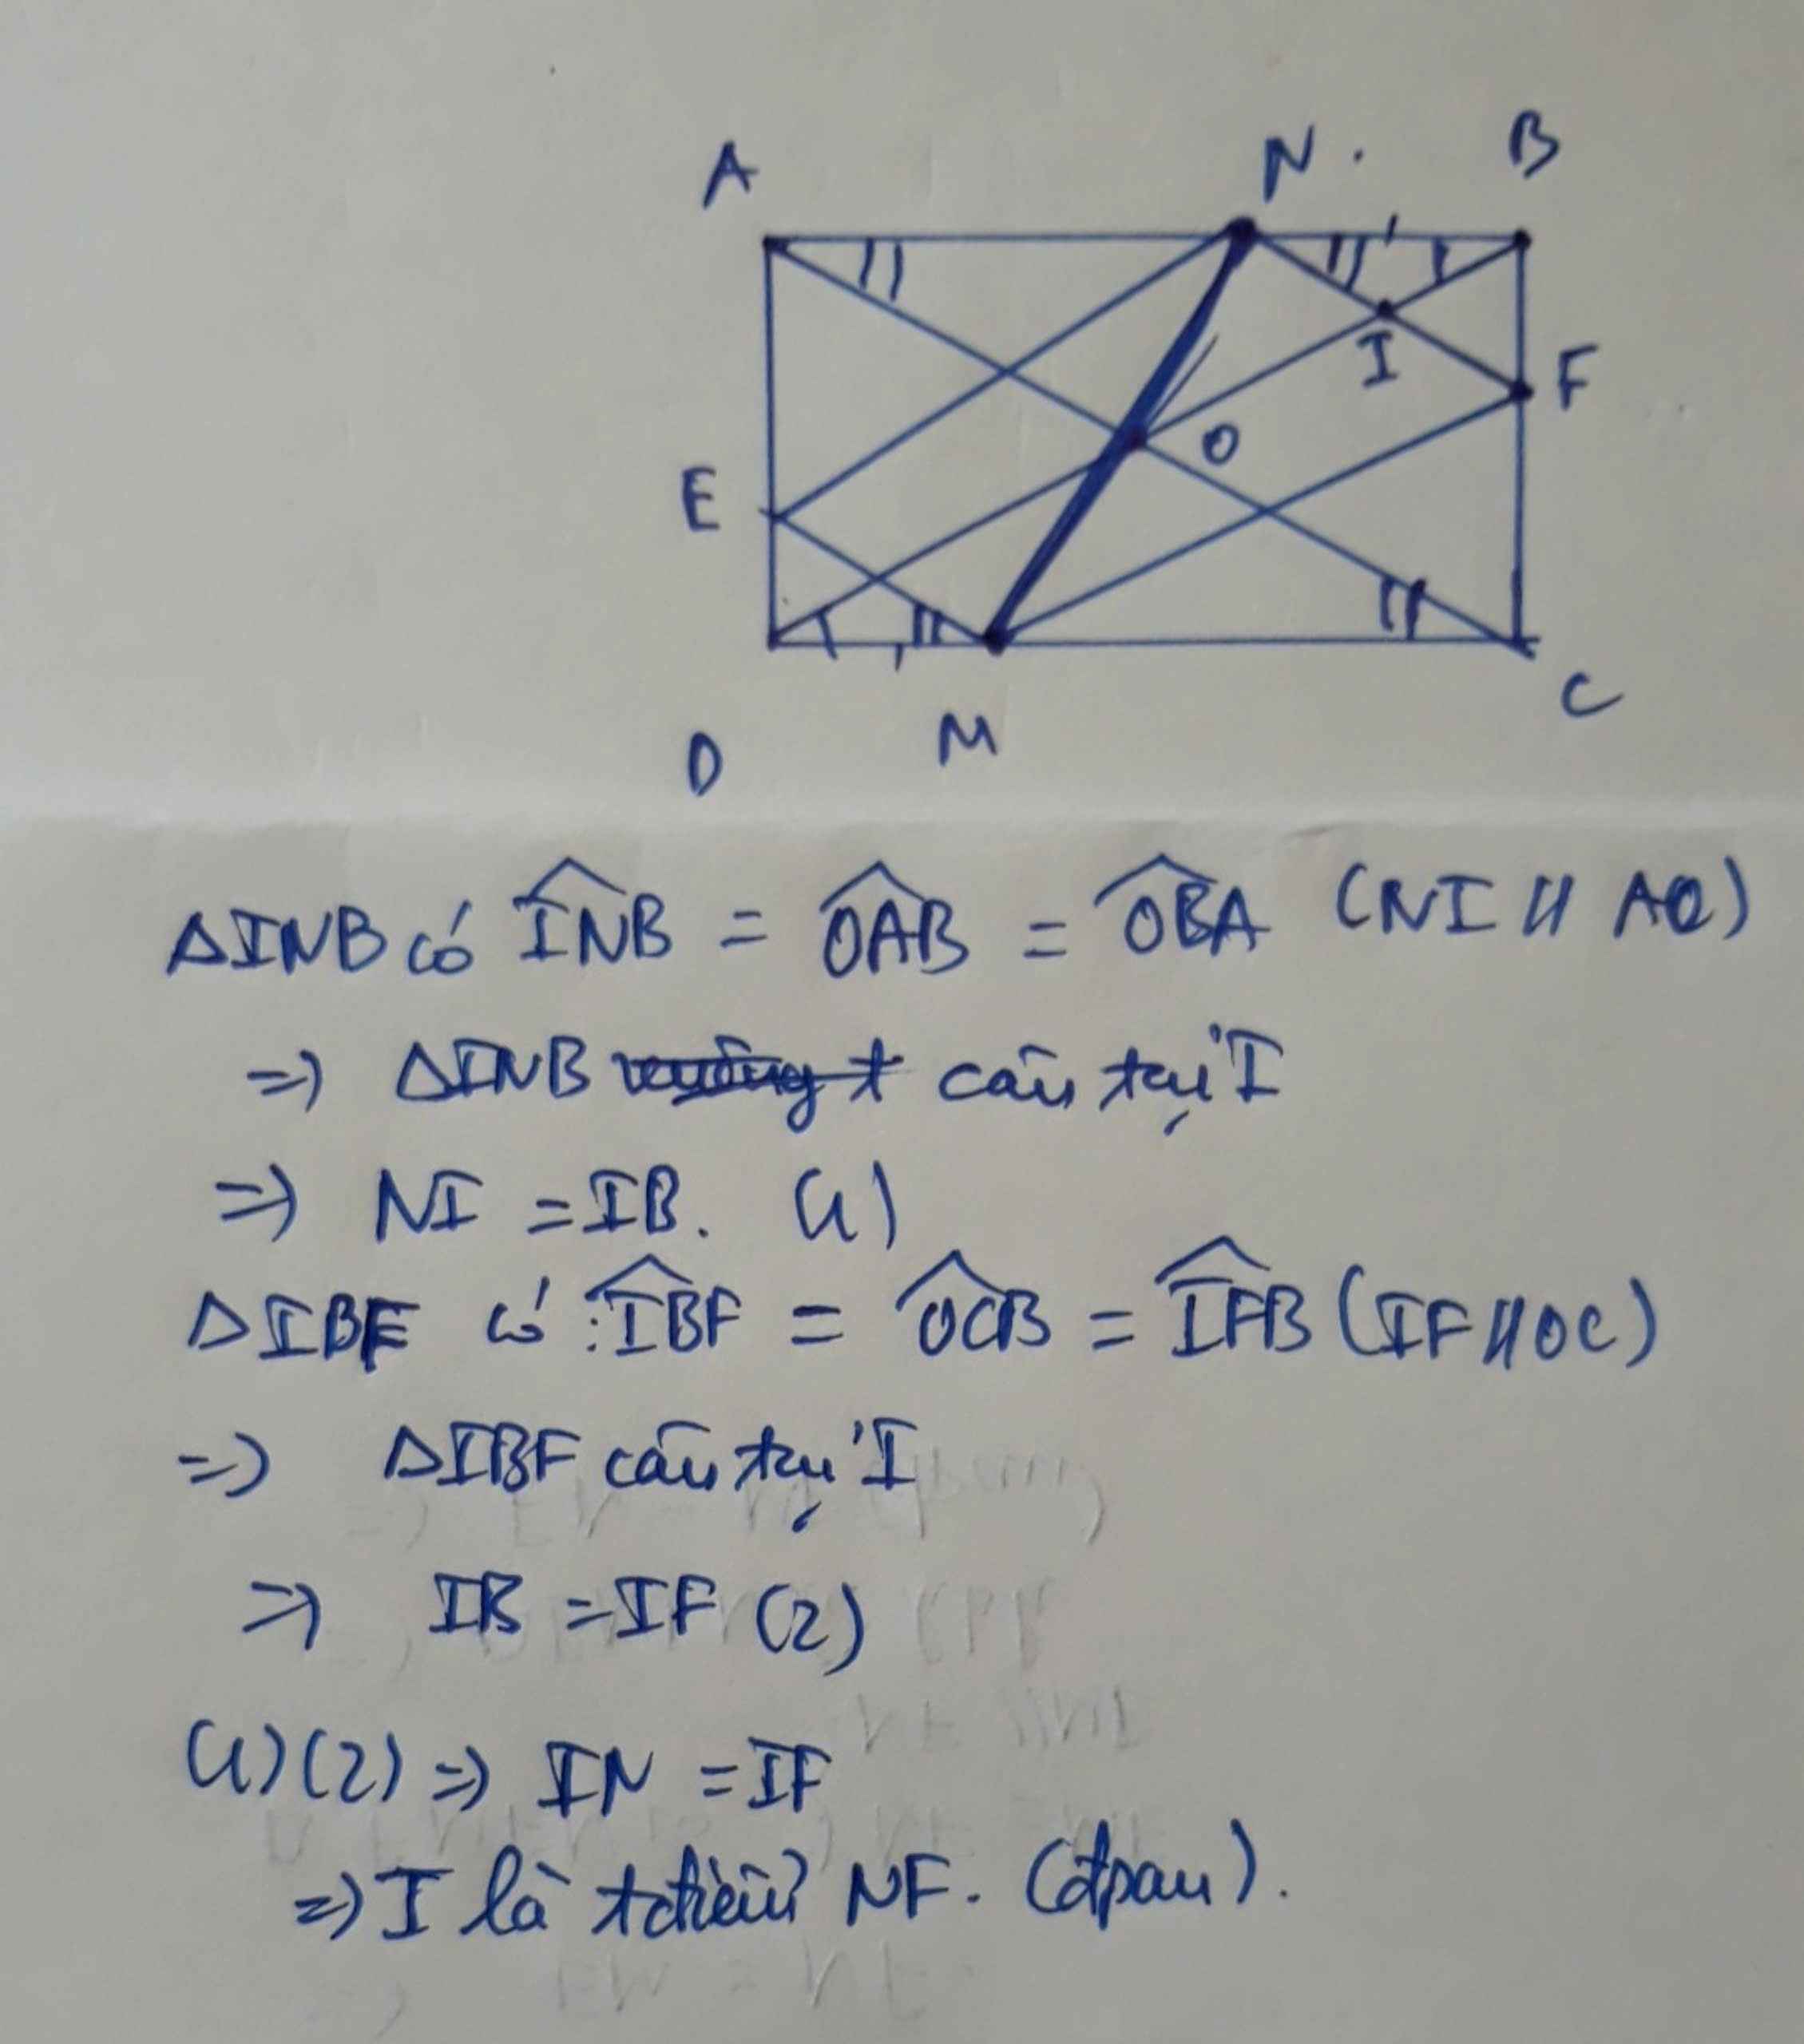 A N. B
I F
O
E
D M C
ΔINB có \widehat{INB} = \widehat{OAB} = \widehat{OBA} (NI // AO)
=> ΔINB cân tại I
=> NI = IB. (1)
ΔIBF có : \widehat{IBF} = \widehat{OCB} = \widehat{IFB} (IF // OC)
=> ΔIBF cân tại I
=> IB = IF (2)
(1) (2) => IN = IF
=> I là tđiểm NF. (đpcm).